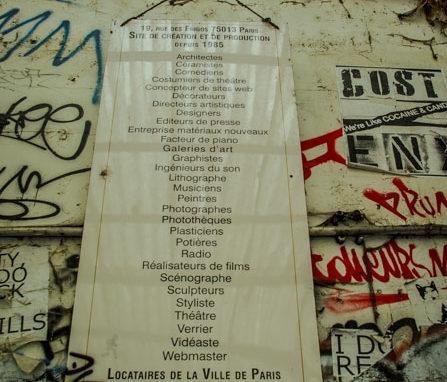 19, rue des Frigos 75013 Paris
Site de création et de production
depuis 1985
Architectes
Céramistes
Comédiens
Costumiers de théâtre
Concepteur de sites web
Décorateurs
Directeurs artistiques
Designers
Editeurs de presse
Entreprise matériaux nouveaux
Facteur de piano
Galeries d'art
Graphistes
Ingénieurs du son
Lithographe
Musiciens
Peintres
Photographes
Photothèques
Plasticiens
Potières
Radio
Réalisateurs de films
Scénographe
Sculpteurs
Styliste
Théâtre
Verrier
Vidéaste
Webmaster
Locataires de la Ville de Paris
COST
We're Like COCAINE &
ENX